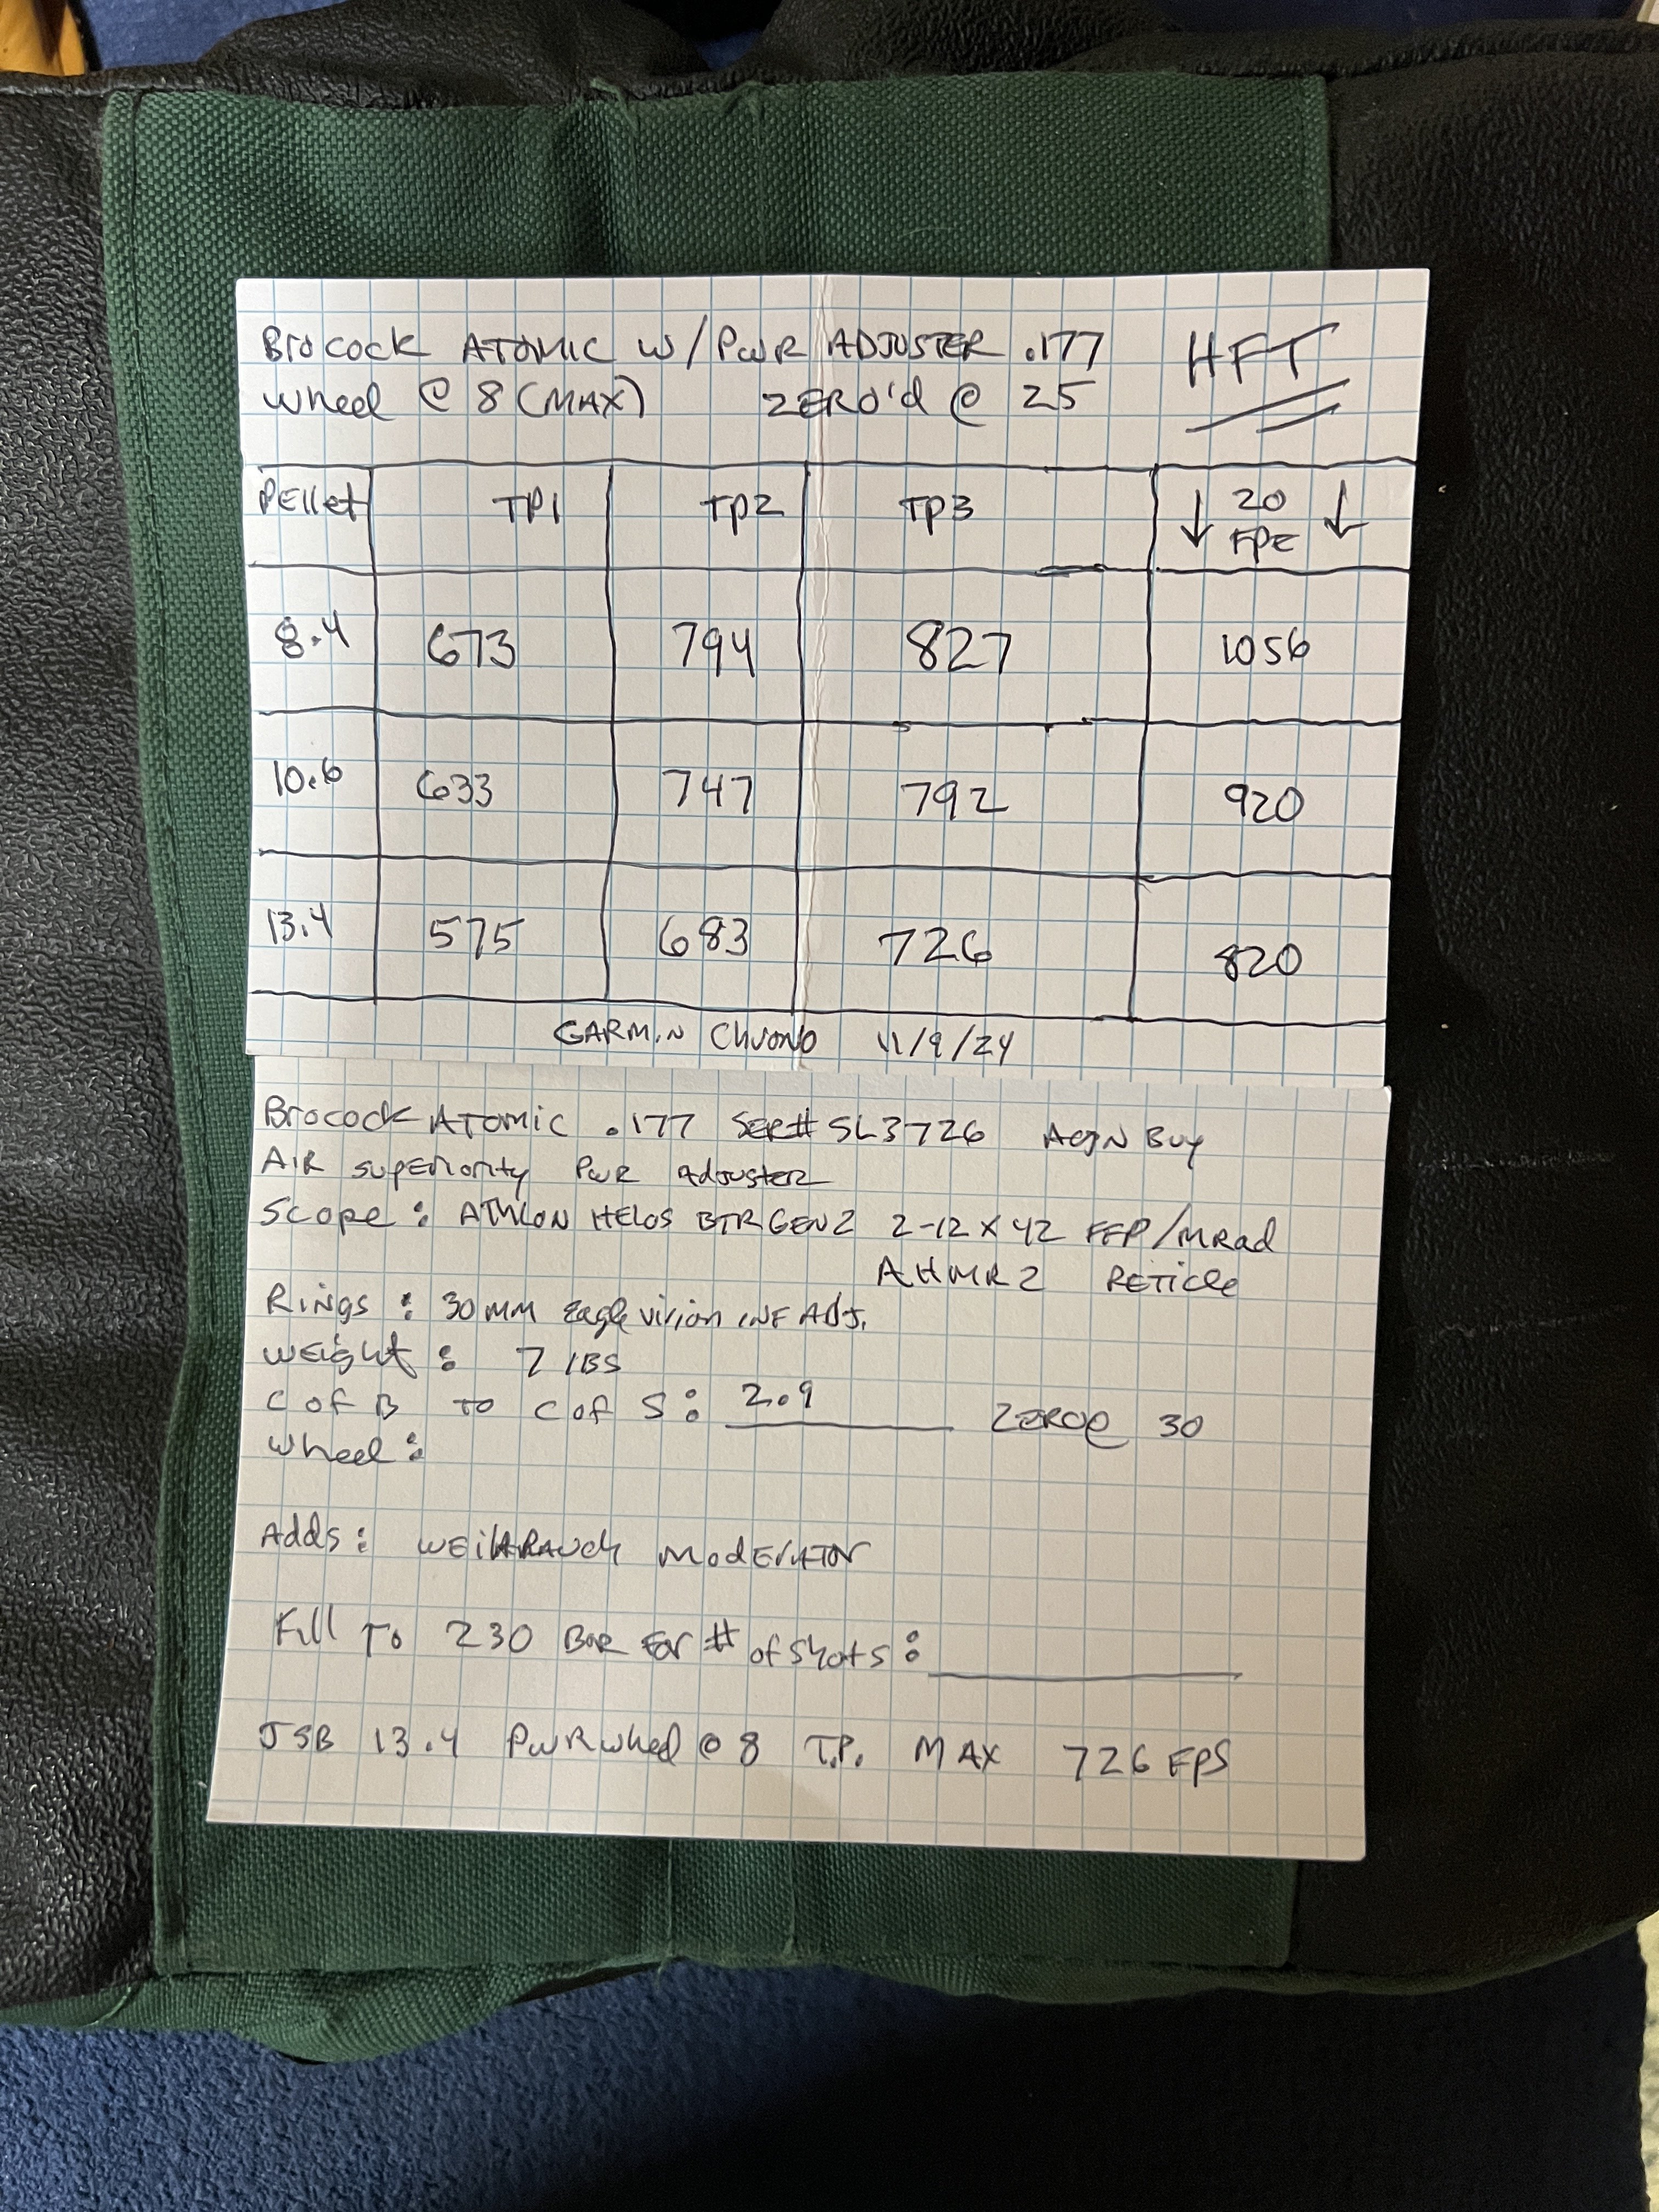 Brocock ATOMIC W/PWR ADJUSTER .177 HFT
Wheel @ 8 (MAX) ZERO'd @ 25
PELLET TP1 TP2 TP3 ↓ 20 FPE ↓
8.4 673 794 827 1056
10.6 633 747 792 920
13.4 575 683 726 820
GARMIN Chrono 11/9/24
Brocock ATOMIC .177 SER# SL3726 AGN Buy
AIR superiority PWR Adjuster
Scope: ATHLON HELOS BTR GEN2 2-12x42 FFP/MRad
AHMR2 RETICLE
Rings: 30MM Eagle vision INF ADJ.
Weight: 7 lBS
C of B to C of S: 2.9 ZERO@ 30
Wheel:
Adds: WEIHRAUCH MODERATOR
Fill To 230 BAR For # of Shots:
JSB 13.4 PWR Wheel @ 8 T.P. MAX 726 FPS